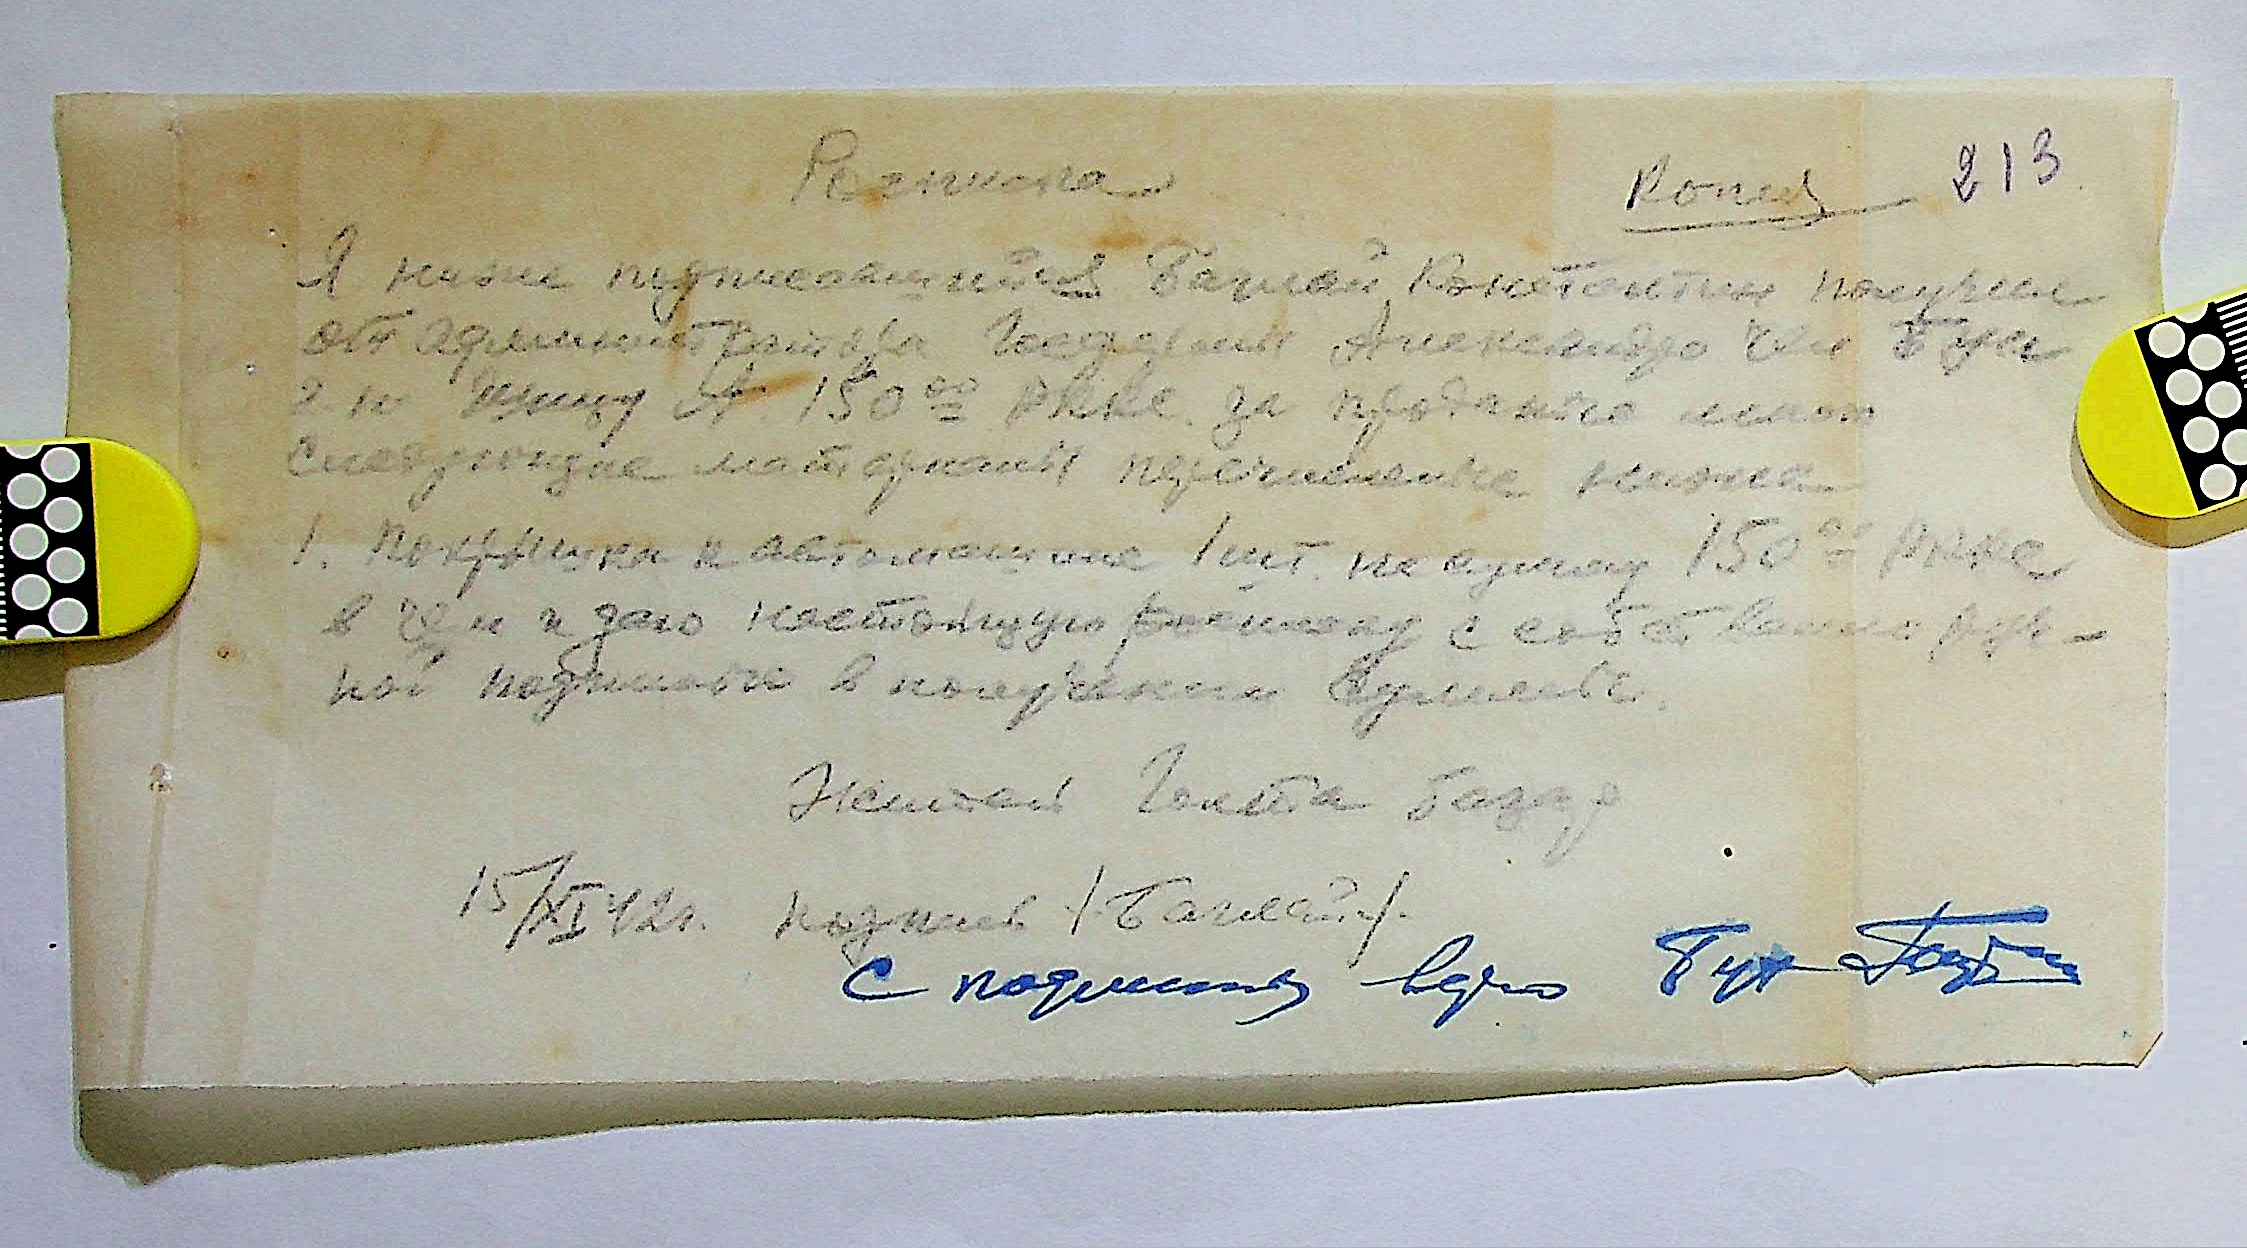 Росписка Копия 213
Я ниже подписавшийся Баглай Константин получил
от администратора Александро
150 00 за проданные мною
следующие материалы перечисленные ниже
1. Покрышка к автомашине 1 шт. на сумму 150 00
в чем и даю настоящую росписку с собственноруч-
ной подписью в получении суммы.
Житель Голта Базар
15/XI 42г. подпись /Баглай/.
С подлинным верно Бух